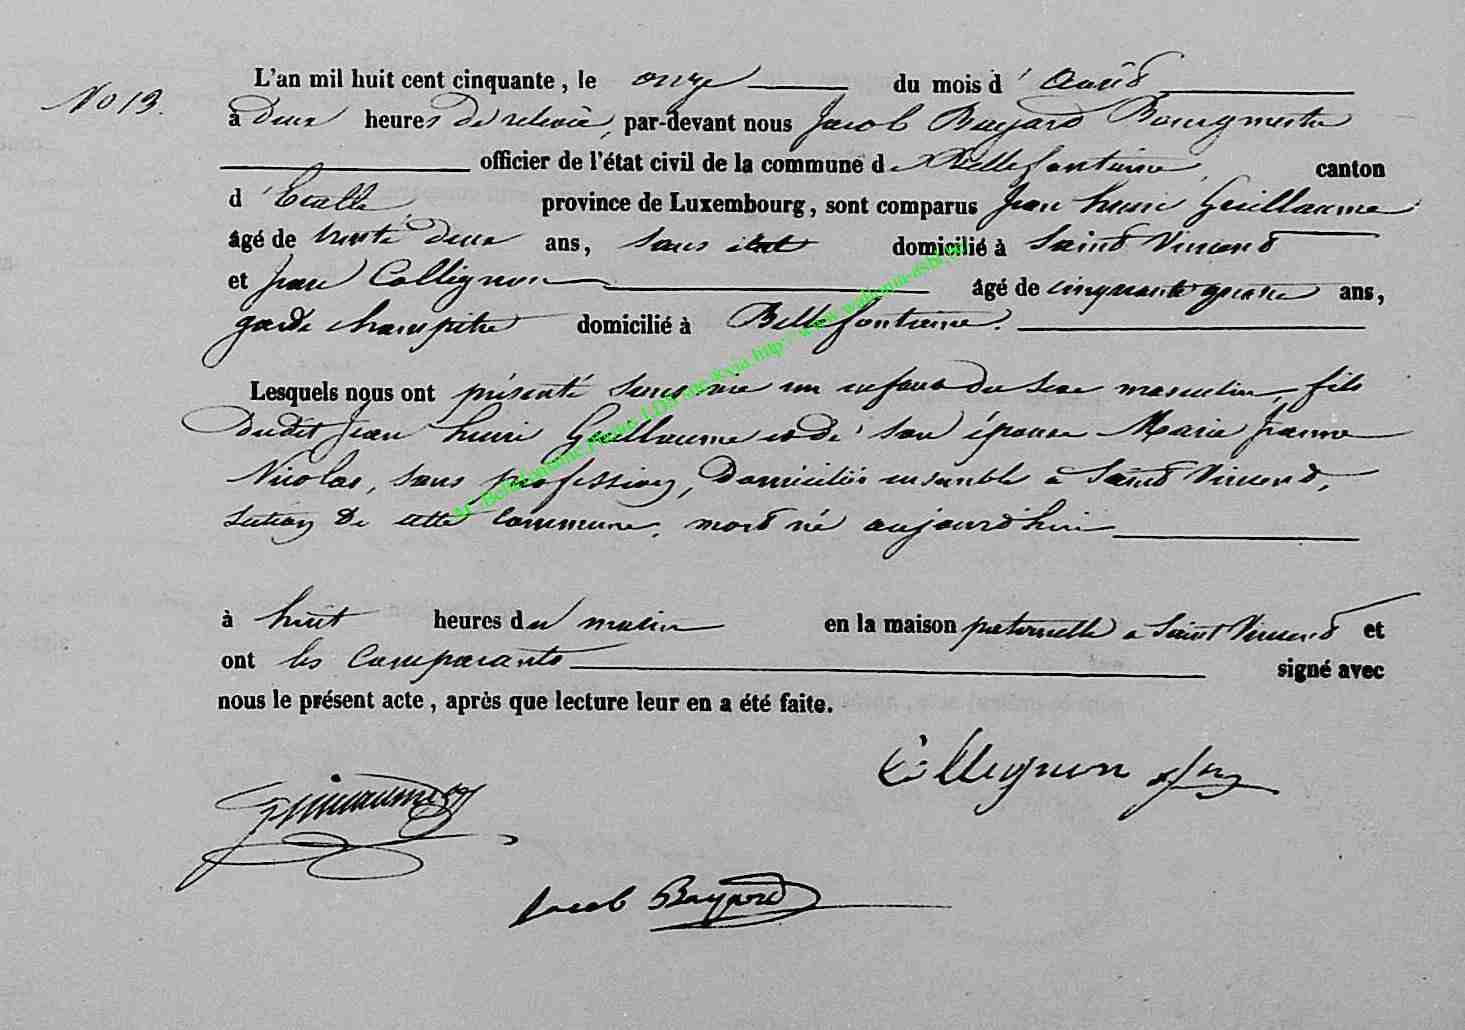 L'an mil huit cent cinquante, le onze du mois d'Avril
No 13.
à Deux heures de relevée, par-devant nous Jacob Bayard Bourgmestre
officier de l'état civil de la commune de Bellefontaine, canton
d'Etalle, province de Luxembourg, sont comparus Jean henri Guillaume
âgé de trente deux ans, sans état domicilié à Saint Vincent
et Jean Collignon âgé de cinquante quatre ans,
garde champêtre domicilié à Bellefontaine.
Lesquels nous ont présenté sans vie un enfant du sexe masculin, fils
Dudit Jean henri Guillaume et de son épouse Marie Jeanne
Nicolas, sans profession, Domiciliés ensemble a Saint Vincent,
section De cette Commune, mort né aujourd'hui
à huit heures du matin en la maison paternelle a Saint Vincent et
ont les comparants signé avec
nous le présent acte, après que lecture leur en a été faite.
Collignon
Guillaume
Jacob Bayard